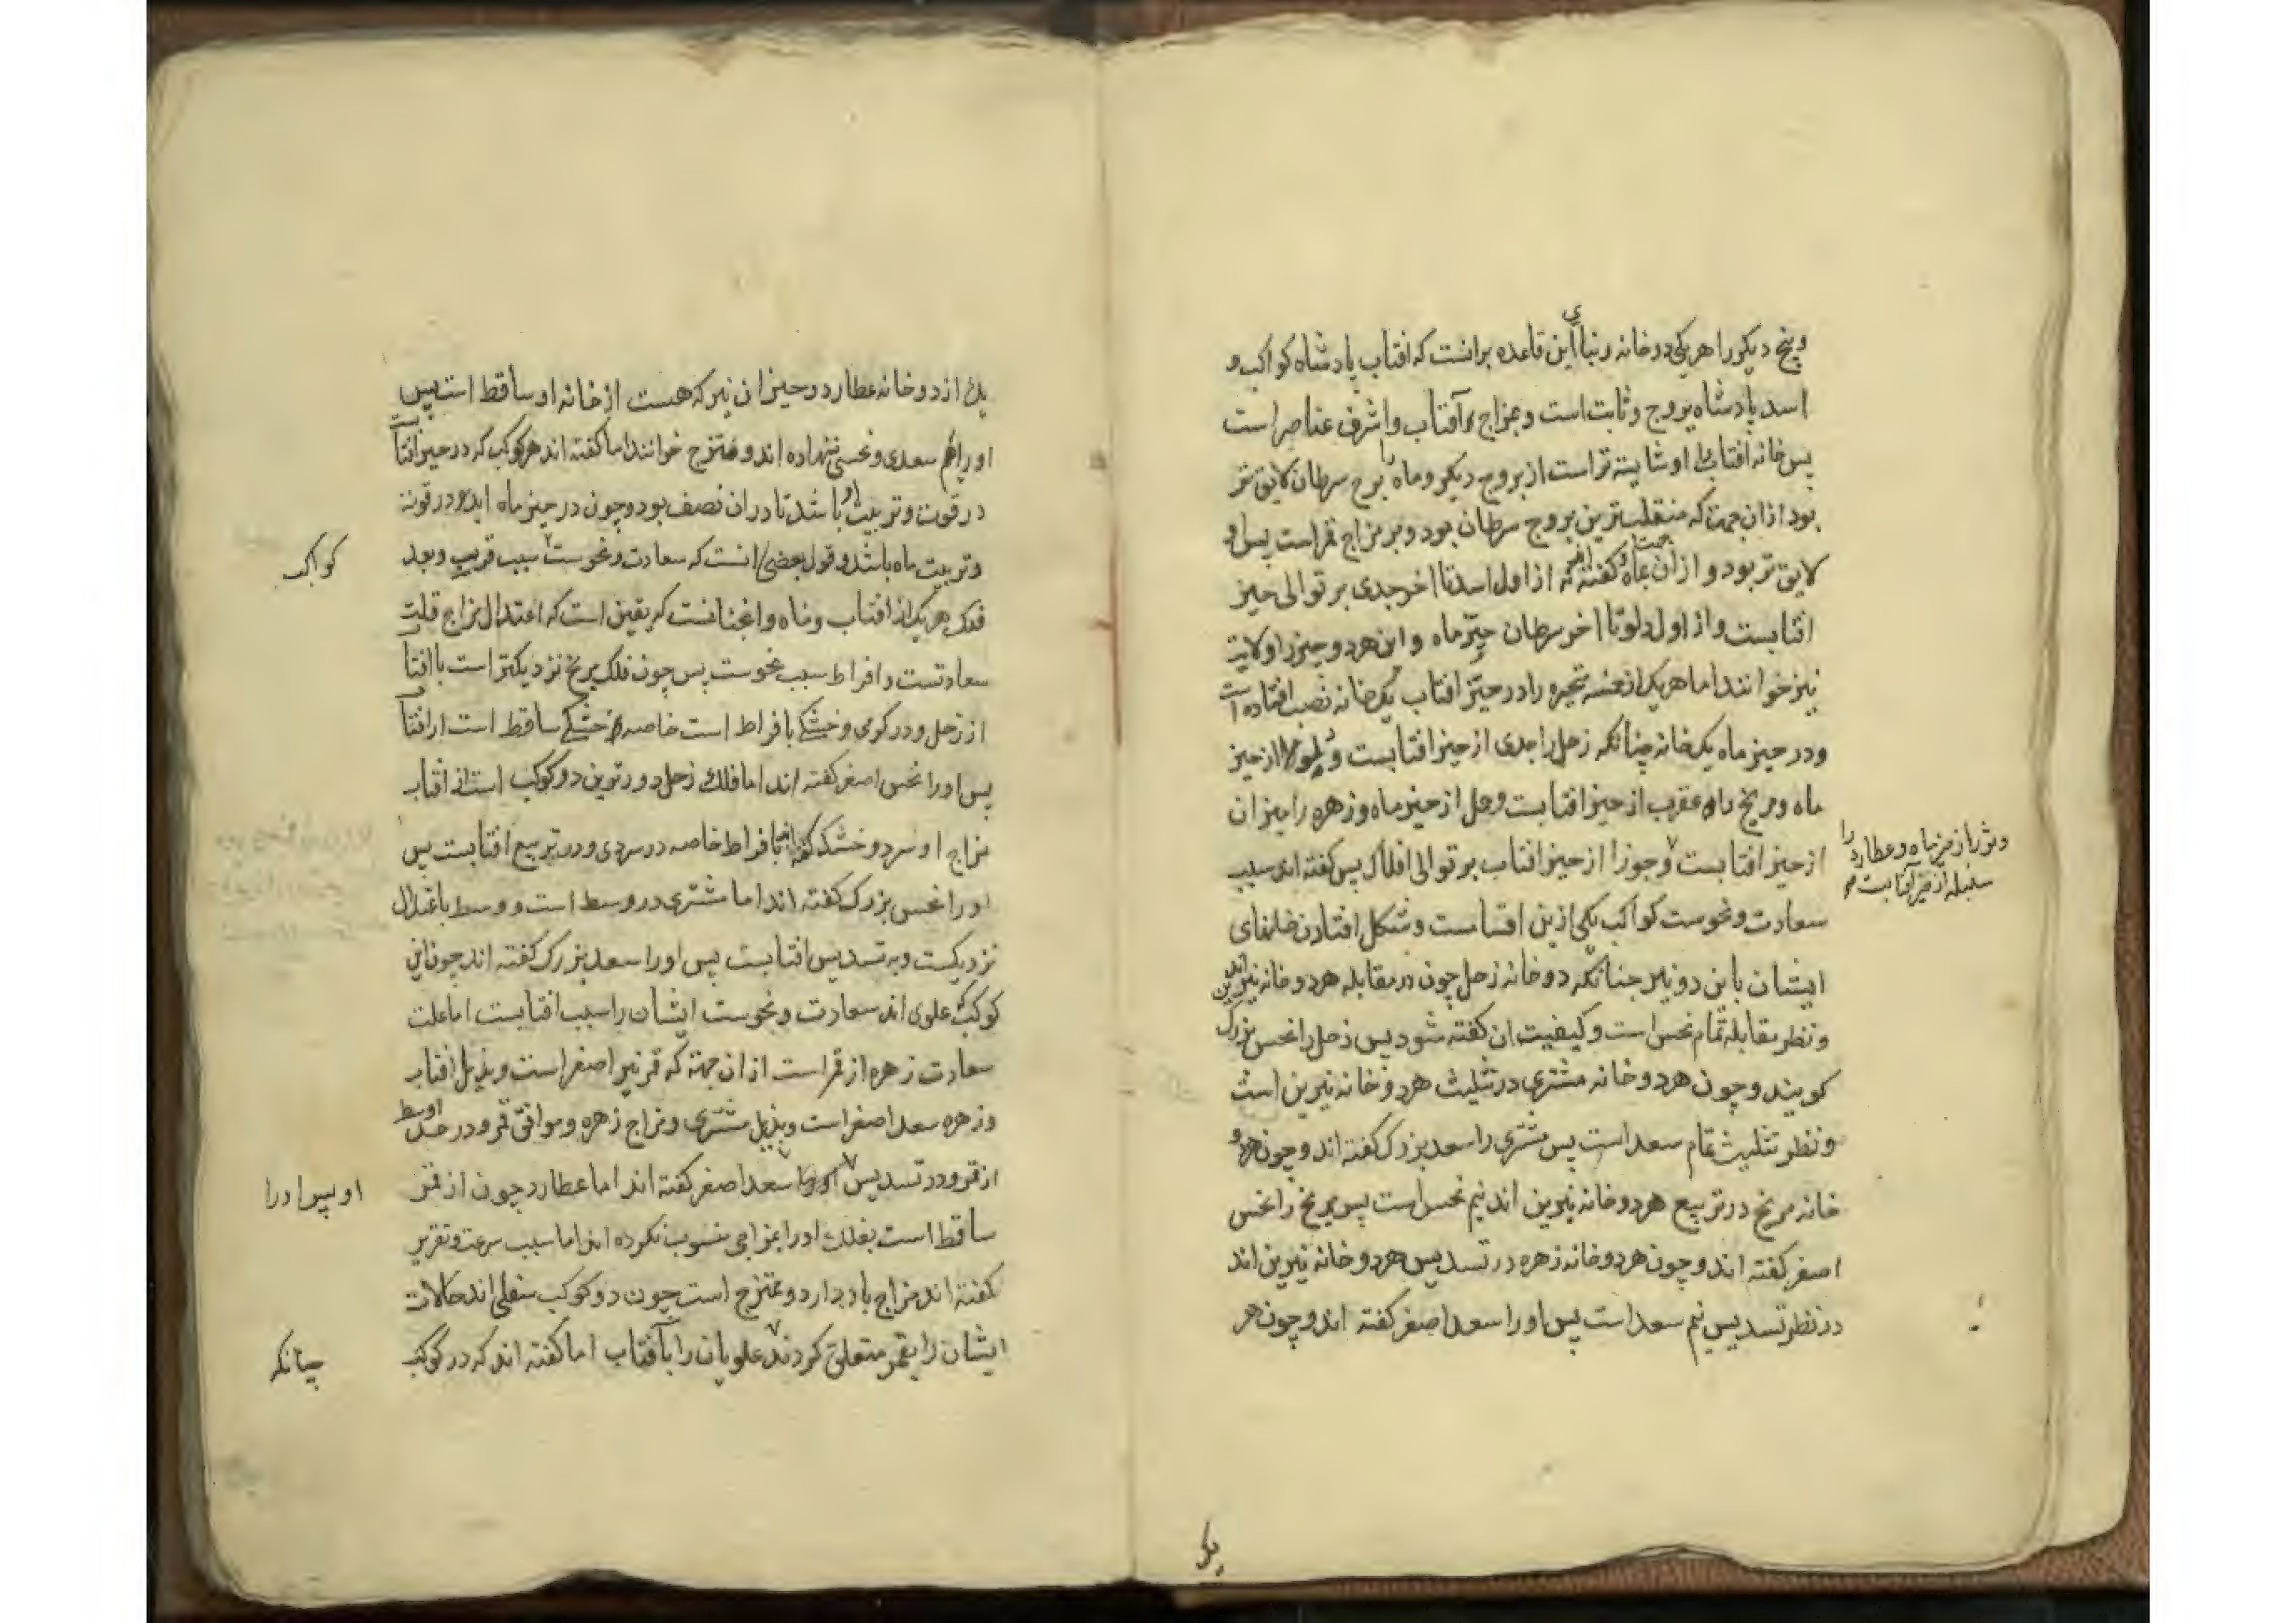 و پنج دیکر را هر یکی دو خانه و بنای این قاعده برانست که افتاب پادشاه کواکب و
اسد پادشاه بروج و ثابت است و بمزاج آفتاب و اشرف عناصر است
پس خانه افتاب را او شایسته تر است از بروج دیکر و ماه را برج سرطان لایق تر
بود ازان جهت که منقلب ترین بروج سرطان بود و بر مزاج قمر است پس او
لایق تر بود و ازان جهت کفته اند که از اول اسد تا اخر جدی بر توالی حیز
افتابست و از اول دلو تا اخر سرطان حیز ماه و این هر دو حیز را ولایت
نیز خوانند اما هر یک از خمسه متحیره را در حیز افتاب یک خانه نصیب افتاده است
و در حیز ماه یک خانه چنانکه زحل را جدی از حیز افتابست و دلو از حیز
ماه و مریخ را عقرب از حیز افتابست و حمل از حیز ماه و زهره را میزان
از حیز افتابست و جوزا از حیز افتاب بر توالی افلاک پس کفته اند سبب
وثور از حیز ماه و عطارد را
سنبله از حیز آفتابست
سعادت و نحوست کواکب یکی ازین اقتباست و شکل افتادن خانهای
ایشان با این دو نیر چنانکه دو خانه زحل چون در مقابله هر دو خانه نیرین اند
و نظر مقابله تمام نحس است و کیفیت ان کفته شود پس زحل را نحس بزرک
کویند و چون هر دو خانه مشتری در تثلیث هر دو خانه نیرین است
و نظر تثلیث تمام سعد است پس مشتری را سعد بزرک کفته اند و چون هر دو
خانه مریخ در تربیع هر دو خانه نیرین اند نیم نحس است پس مریخ را نحس
اصغر کفته اند و چون هر دو خانه زهره در تسدیس هر دو خانه نیرین اند
در نظر تسدیس نیم سعد است پس او را سعد اصغر کفته اند و چون هر
یک
یک از دو خانه عطارد در حیز ان نیر که هست از خانه او ساقط است پس
او را هم سعدی و نحسی ننهاده اند و ممتزج خوانند اما کفته اند هر کوکب که در حیز افتابست
در قوت و تربیت او باشد تا دران نصف بود و چون در حیز ماه اید در قوت
و تربیت ماه باشد و قول بعضی انست که سعادت و نحوست بسبب قرب و بعد
کواکب
فلک هر یک از افتاب و ماه و انچنانست که یقین است که اعتدال مزاج قلت
سعادتست و افراط سبب نحوست پس چون فلک مریخ نزدیکتر است با افتاب
از زحل و در کرمی و خشکی بافراط است خاصه خشکی ساقط است از افتاب
پس او را نحس اصغر کفته اند اما فلک زحل دورترین دو کوکب است از افتاب
مزاج او سرد و خشک کفته اند بافراط خاصه در سردی و در تربیع افتابست پس
او را نحس بزرک کفته اند اما مشتری در وسط است و وسط باعتدال
نزدیکست و به تسدیس افتابست پس او را سعد بزرک کفته اند چون این
کوکب علوی اند سعادت و نحوست ایشان را سبب افتابست اما علت
سعادت زهره از قمر است ازان جهة که قمر نیر اصغر است و بذیل افتاب
و زهره سعد اصغر است و بذیل مشتری و مزاج زهره و موافق قمر و در حد اوسط
از قمر و در تسدیس سعد اصغر کفته اند اما عطارد چون از قمر
او پس او را
ساقط است بفلک او را بمزاجی منسوب نکرده اند اما سبب سرعت و تقریر
کفته اند مزاج باد دارد و ممتزج است چون دو کوکب سفلی اند حالات
ایشان را بقمر متعلق کردند و علویان را بآفتاب اما کفته اند که در کوکب
چنانکه